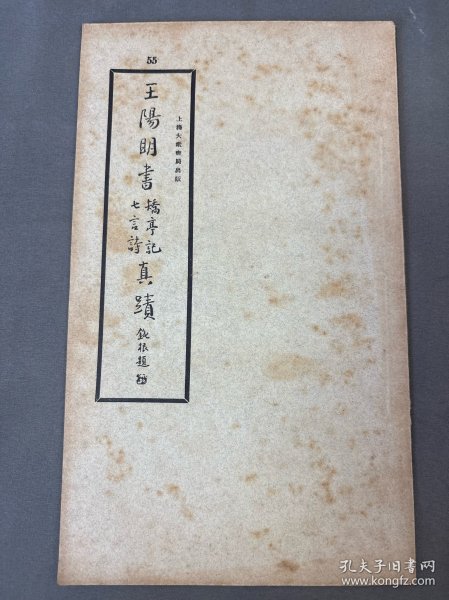 55
上海大眾書局出版
王陽明書矯亭記七言詩真蹟
鈍根題
孔夫子旧书网
www.kongfz.com